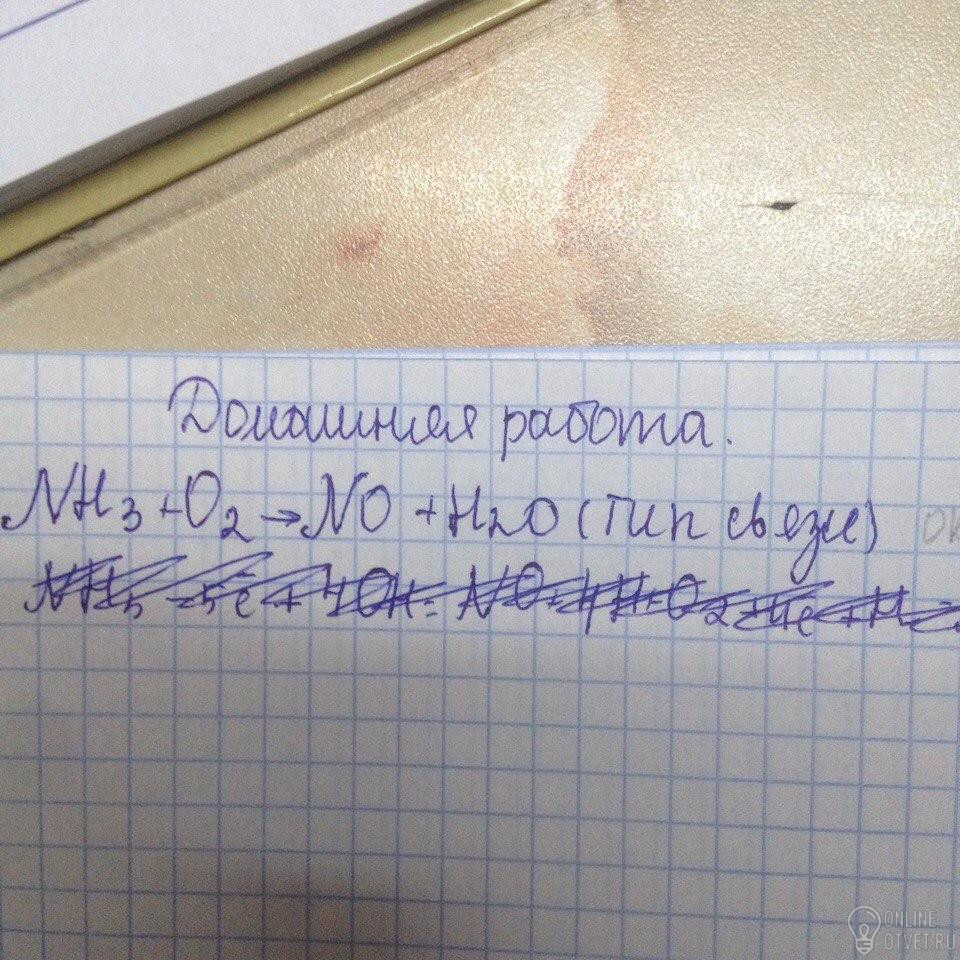 Домашняя работа.
NH3 + O2 → NO + H2O (тип связи)
ONLINE
OTVET.RU